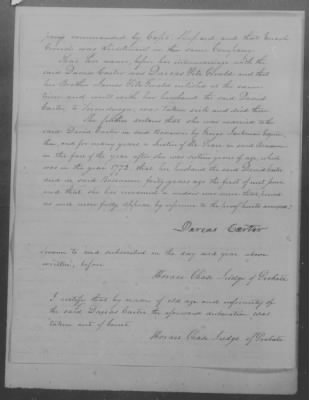 pany commanded by Capt. Shepard and that Enoch
was Lieutenant in the same Company.
That her name, before her intermarriage with the
said David Carter was Darcas Fitz Gerald and that
her Brother James Fitz Gerald enlisted at the same
time and went with her husband the said David
Carter, to Ticonderoga, was taken sick and died there
She further declares that she was married to the
said David Carter in said by George Jackman Esquire
then, and for many years a Justice of the Peace in said
in the fore of the year after she was sixteen years of age, which
was in the year 1772. that her husband the said David Carter
died in said forty years ago the first of next June
and that she has remained a widow ever since that period,
as will more fully appear by reference to the proof hereto annexed
Darcas Carter
Sworn to and subscribed in the day and year above
written, before
Horace Chase Judge of Probate
I certify that by reason of old age and infirmity of
the said Darcas Carter the aforesaid declaration was
taken out of Court.
Horace Chase Judge of Probate